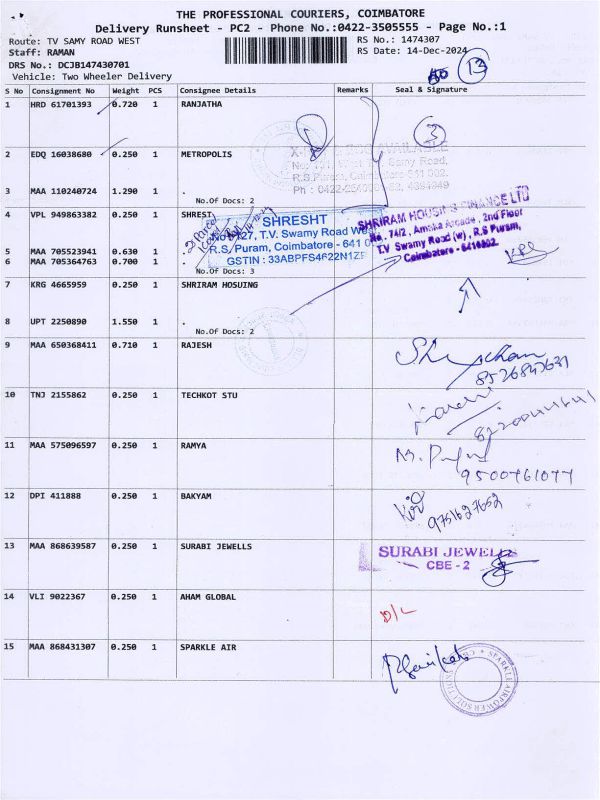 THE PROFESSIONAL COURIERS, COIMBATORE
Delivery Runsheet - PC2 - Phone No.:0422-3505555 - Page No.:1
Route: TV SAMY ROAD WEST
RS No.: 1474307
Staff: RAMAN
RS Date: 14-Dec-2024
DRS No.: DCJB147430701
Vehicle: Two Wheeler Delivery
13
S No Consignment No Weight PCS Consignee Details Remarks Seal & Signature
1 HRD 61701393 0.720 1 RANJATHA
3
2 EDQ 16038680 0.250 1 METROPOLIS
R.S.Puram, Coimbatore 641 002.
3 MAA 110240724 1.290 1 .
No.Of Docs: 2
4 VPL 949863382 0.250 1 SHREST
SHRESHT
No 127, T.V. Swamy Road West
R.S. Puram, Coimbatore - 641 0
GSTIN : 33ABPFS4622N1ZF
SHRIRAM HOUSING FINANCE LTD
No. 74/2, Amsha Arcade, 2nd Floor
T.V Swamy Road (w), R.S Puram,
Coimbatore - 641002.
5 MAA 705523941 0.630 1 .
6 MAA 705364763 0.700 1 .
No.Of Docs: 3
7 KRG 4665959 0.250 1 SHRIRAM HOSUING
8 UPT 2250890 1.550 1 .
No.Of Docs: 2
9 MAA 650368411 0.710 1 RAJESH
10 TNJ 2155862 0.250 1 TECHKOT STU
11 MAA 575096597 0.250 1 RAMYA
9500761077
12 DPI 411888 0.250 1 BAKYAM
9751627652
13 MAA 868639587 0.250 1 SURABI JEWELLS
SURABI JEWELLS
CBE - 2
14 VLI 9022367 0.250 1 AHAM GLOBAL
D/L
15 MAA 868431307 0.250 1 SPARKLE AIR